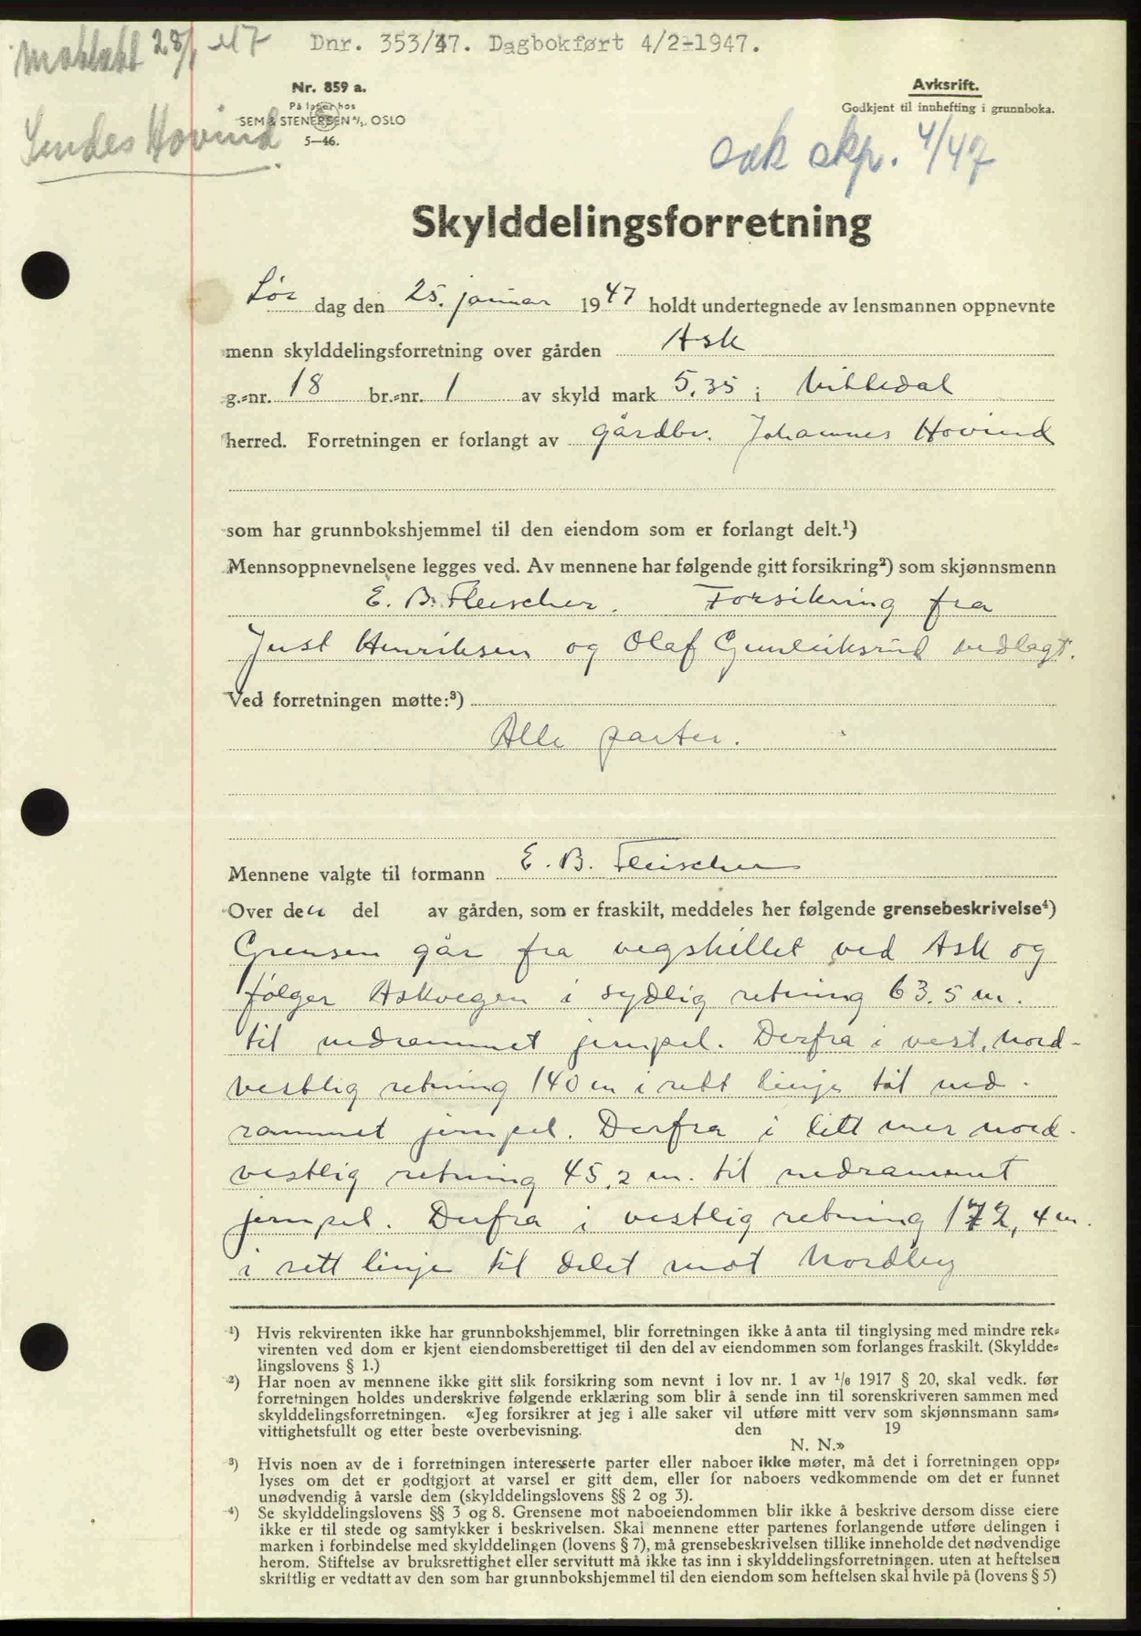 Mottatt 28/1 47
Dnr. 353/47. Dagbokført 4/2-1947.
Nr. 859 a.
På lager hos
SEM & STENERSEN A/S. OSLO
5—46.
Sendes Hovind.
Avksrift.
Godkjent til innhefting i grunnboka.
sak skp. 4/47
Skylddelingsforretning
Lør dag den 25. januar 1947 holdt undertegnede av lensmannen oppnevnte
menn skylddelingsforretning over gården Ask
g.-nr. 18 br.-nr. 1 av skyld mark 5,35 i Nittedal
herred. Forretningen er forlangt av gårdbr. Johannes Hovind
som har grunnbokshjemmel til den eiendom som er forlangt delt.¹)
Mennsoppnevnelsene legges ved. Av mennene har følgende gitt forsikring²) som skjønnsmenn
E. B. Fleischer. Forsikring fra
Just Henriksen og Olaf Gunleiksrud vedlagt.
Ved forretningen møtte:³)
Alle parter.
Mennene valgte til formann E. B. Fleischer
Over den del av gården, som er fraskilt, meddeles her følgende grensebeskrivelse⁴)
Grensen går fra vegskillet ved Ask og
følger Askvegen i sydlig retning 63.5 m.
til nedrammet jernpel. Derfra i vest, nord-
vestlig retning 140 m i rett linje til ned-
rammet jernpel. Derfra i litt mer nord-
vestlig retning 45,2 m. til nedrammet
jernpel. Derfra i vestlig retning 172,4 m.
i rett linje til delet mot Nordby
¹) Hvis rekvirenten ikke har grunnbokshjemmel, blir forretningen ikke å anta til tinglysing med mindre rek-
virenten ved dom er kjent eiendomsberettiget til den del av eiendommen som forlanges fraskilt. (Skyldde-
lingslovens § 1.)
²) Har noen av mennene ikke gitt slik forsikring som nevnt i lov nr. 1 av 1/6 1917 § 20, skal vedk. før
forretningen holdes underskrive følgende erklæring som blir å sende inn til sorenskriveren sammen med
skylddelingsforretningen. «Jeg forsikrer at jeg i alle saker vil utføre mitt verv som skjønnsmann sam-
vittighetsfullt og etter beste overbevisning. den 19
N. N.»
³) Hvis noen av de i forretningen interesserte parter eller naboer ikke møter, må det i forretningen opp-
lyses om det er godtgjort at varsel er gitt dem, eller for naboers vedkommende om det er funnet
unødvendig å varsle dem (skylddelingslovens §§ 2 og 3).
⁴) Se skylddelingslovens §§ 3 og 8. Grensene mot naboeiendommen blir ikke å beskrive dersom disse eiere
ikke er til stede og samtykker i beskrivelsen. Skal mennene etter partenes forlangende utføre delingen i
marken i forbindelse med skylddelingen (lovens § 7), må grensebeskrivelsen tillike inneholde det nødvendige
herom. Stiftelse av bruksrettighet eller servitutt må ikke tas inn i skylddelingsforretningen. uten at heftelsen
skriftlig er vedtatt av den som har grunnbokshjemmel til den eiendom som heftelsen skal hvile på (lovens § 5)